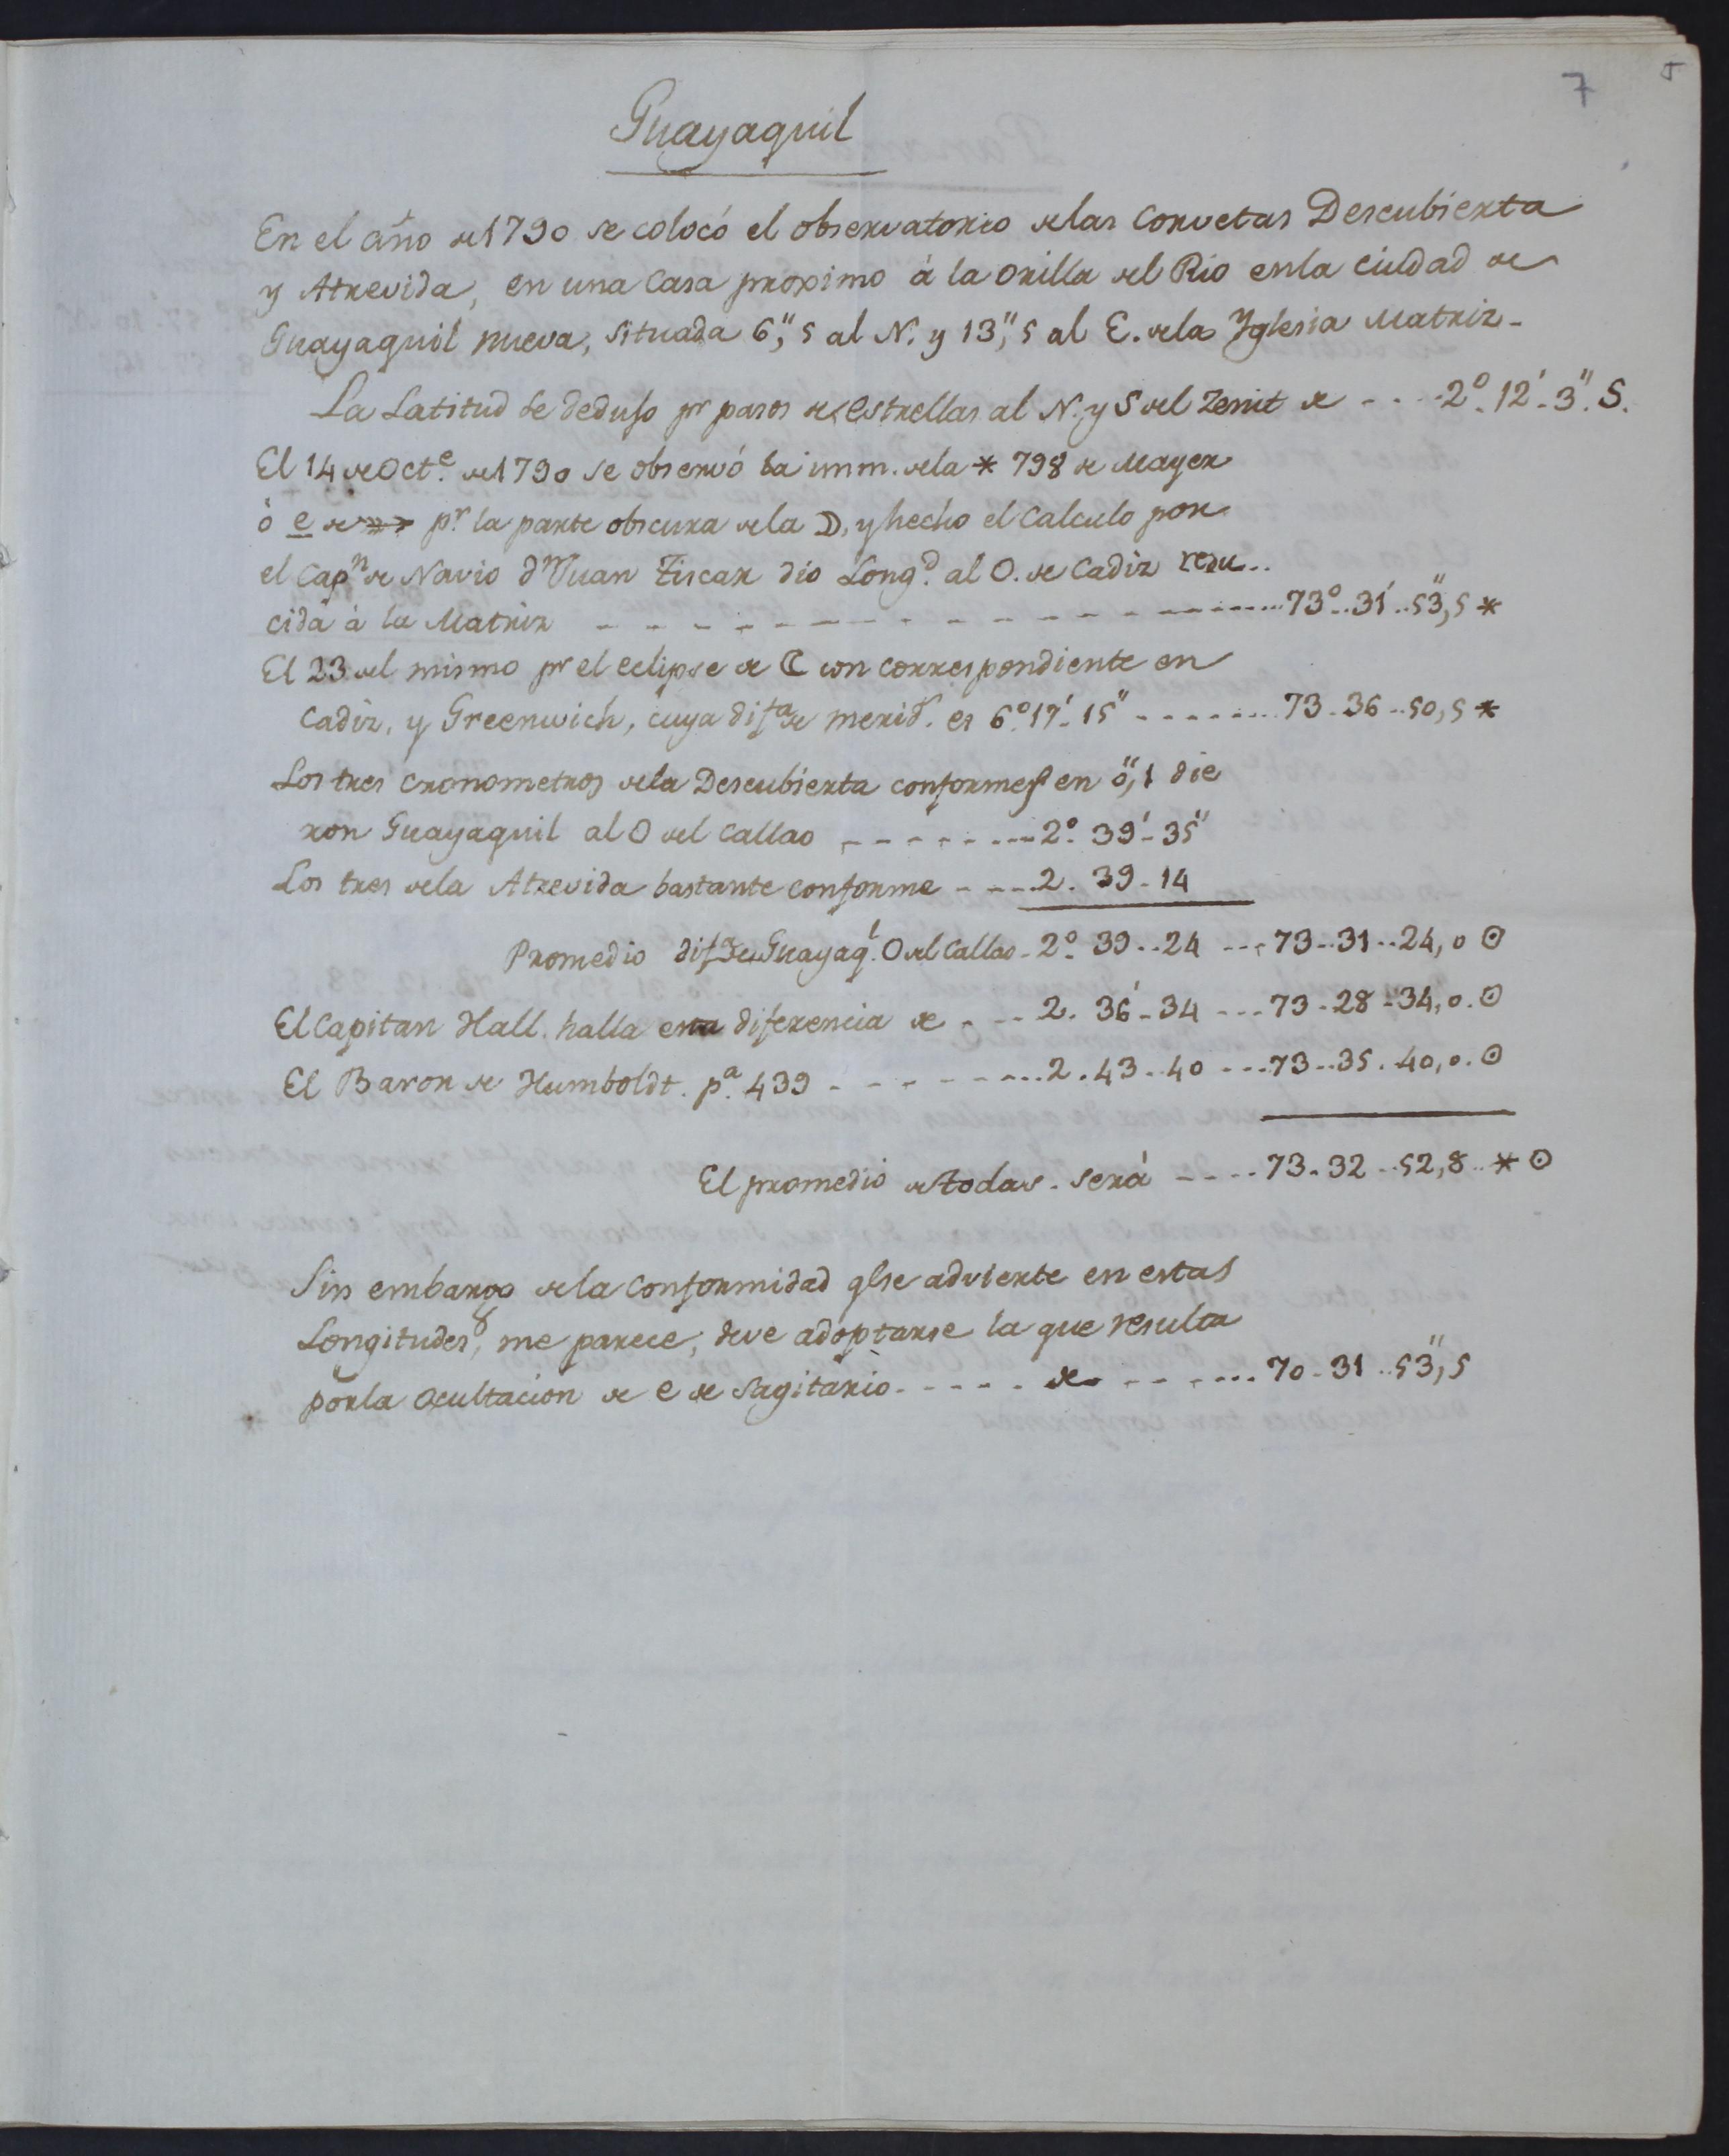 7 5
Guayaquil
En el año de 1790 se colocó el observatorio delas Corvetas Descubierta
y Atrevida, en una Casa proximo à la orilla del Rio enla ciudad de
Guayaquil nueva, situada 6",5 al N. y 13",5 al E. dela Yglesia Matriz-
La Latitud se dedujo pr pasos de estrellas al N. y S del Zenit de - - - - 2°. 12'. 3". S.
El 14 de Octe. de 1790 se observó la imm. dela * 798 de Mayer
ò e de ♐ pr. la parte obscura dela ☽, y hecho el Calculo por
el Capn de Navio dn Juan Tiscar dio Longd. al O. de Cadiz redu..
cida à la Matriz - - - - - - - - - - - - - - - - 73°..31'..53",5 *
El 23 del mismo pr el eclipse de ☾ con correspondiente en
Cadiz, y Greenwich, cuya difa de merid. es 6°. 17'. 15" - - - - - - - 73-36..50,5 *
Los tres cronometros dela Descubierta conformes en 0",1 die
ron Guayaquil al O del Callao - - - - - - - 2°. 39'- 35"
Los tres dela Atrevida bastante conforme - - - - 2. 39- 14
Promedio difa de Guayaql. O del Callao- 2°. 39..24 --- 73..31..24,0 ⊙
El Capitan Hall. halla esta diferencia de - - - 2. 36'- 34 --- 73-28-34,0. ⊙
El Baron de Humboldt. pa. 439 - - - - - - - - 2. 43..40 --- 73..35. 40,0. ⊙
El promedio de todas. será - - - - 73-32..52,8.. * ⊙
Sin embargo dela Conformidad qe se advierte en estas
Longitudes, me parece, deve adoptarse la que resulta
por la Ocultacion de e de Sagitario - - - - - de - - - - - - 70-31..53",5